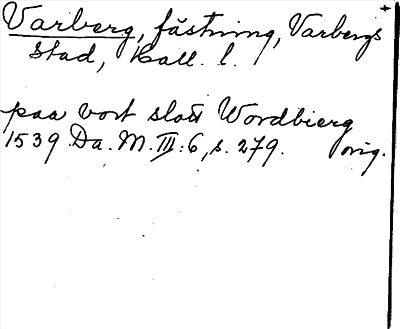 Varberg, fästning, Varbergs +
stad, Hall. l.
paa vort slott Wordbierg
1539 Da. M. III:6, s. 279. orig.